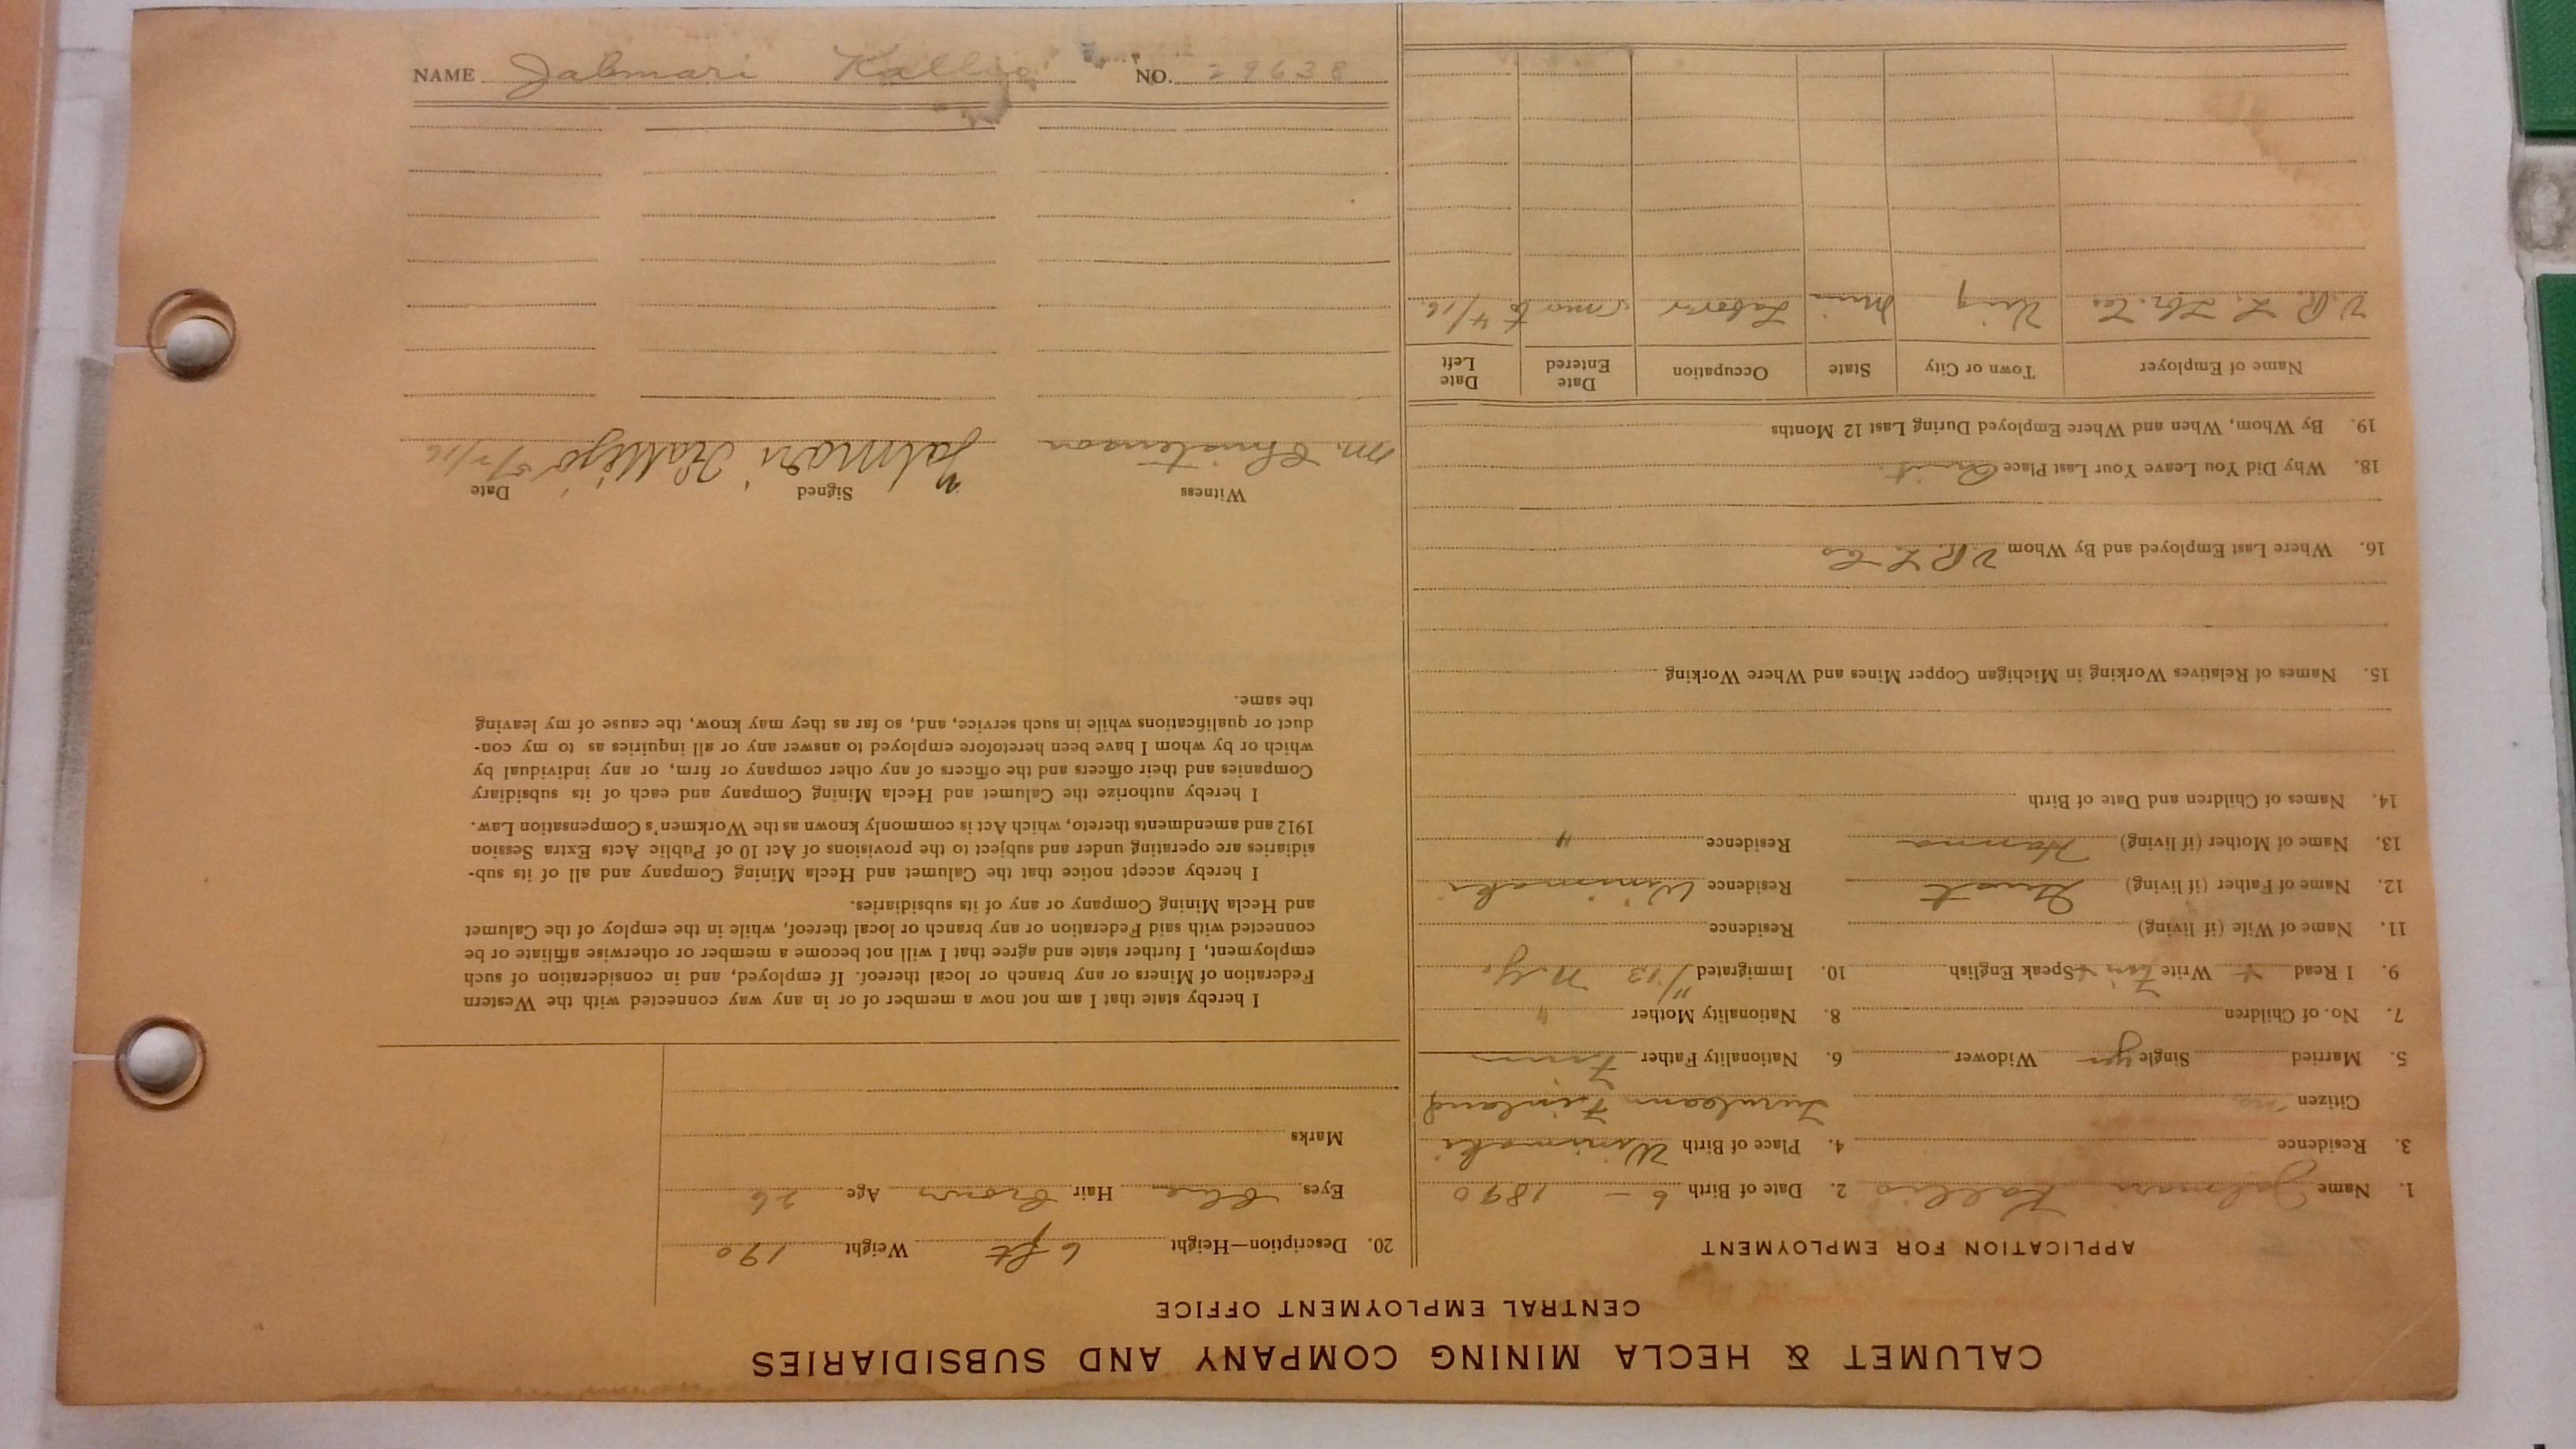 CALUMET & HECLA MINING COMPANY AND SUBSIDIARIES
CENTRAL EMPLOYMENT OFFICE
APPLICATION FOR EMPLOYMENT
1. Name Jalmari Kallio 2. Date of Birth 6 – 1890
3. Residence 4. Place of Birth
Citizen no Finland
5. Married Single yes Widower 6. Nationality Father Finn
7. No. of Children 8. Nationality Mother "
9. I Read + Write Finn + Speak English 10. Immigrated 11/13 N.Y.
11. Name of Wife (if living) Residence
12. Name of Father (if living) Residence
13. Name of Mother (if living) Hanna Residence "
14. Names of Children and Date of Birth
15. Names of Relatives Working in Michigan Copper Mines and Where Working
16. Where Last Employed and By Whom V. R. L. Co
18. Why Did You Leave Your Last Place Quit
19. By Whom, When and Where Employed During Last 12 Months
Name of Employer Town or City State Occupation Date Entered Date Left
V. R. L. Lbr. Co. Minn Labor 5 mo to 4/16.
20. Description—Height 6 ft Weight 190
Eyes Blue Hair Brown Age 26
Marks
I hereby state that I am not now a member of or in any way connected with the Western
Federation of Miners or any branch or local thereof. If employed, and in consideration of such
employment, I further state and agree that I will not become a member or otherwise affiliate or be
connected with said Federation or any branch or local thereof, while in the employ of the Calumet
and Hecla Mining Company or any of its subsidiaries.
I hereby accept notice that the Calumet and Hecla Mining Company and all of its sub-
sidiaries are operating under and subject to the provisions of Act 10 of Public Acts Extra Session
1912 and amendments thereto, which Act is commonly known as the Workmen's Compensation Law.
I hereby authorize the Calumet and Hecla Mining Company and each of its subsidiary
Companies and their officers and the officers of any other company or firm, or any individual by
which or by whom I have been heretofore employed to answer any or all inquiries as to my con-
duct or qualifications while in such service, and, so far as they may know, the cause of my leaving
the same.
Witness Signed Date
M. Christenson Jalmari Kallijo 5/2/16
NAME Jalmari Kallio NO. 29638